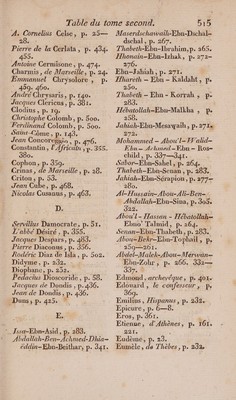 Table du tome second. 515
A. Cornelius Celse, p. 25—
28.
Pierre de la Cerlata, p. 434-
455.
Antoine Cermisone, p. 474.
Charmis, de Marseille, p. 24.
Emmanuel Chrysolore, p.
459. 460.
André Chrysaris, p. 140.
Jacques Clericus, p. 381.
Clodius, p. 19.
Christophe Colomb, p. 500.
Ferdinand Colomb, p. 500.
Saint-Côme, p. 143.
Jean Concorregio, p. 476.
Constantin, l'Africain, p. 355.
380.
Cophon, p. 359.
Crinas, de Marseille, p. 28.
Criton, p. 53.
Jean Cube, p. 468.
Nicolas Cusanus, p. 463.
D.
Servilius Damocrate, p. 51.
L'abbé Désiré, p. 355.
Jacques Despars, p. 463.
Pierre Diaconus, p. 356.
Rodéric Diaz de Isla, p. 502.
Didyme, p. 232.
Diophane, p. 231.
Pedacius Dioscoride, p. 58.
Jacques de Dondis, p. 436.
Jean de Dondis, p. 436.
Duni, p. 425.
E.
Issa-Ebn-Asid, p. 283.
Abdallah-Ben-Achmed-Dhia-
eddin-Ebn-Beithar, p. 341.
Maserdschawaih-Ebn-Dschal-
dschal, p. 267.
Thabeth-Ebn-Ibrahim, p. 265.
Hhonain-Ebn-Izhak, p. 272-
276.
Ebn-Jahiah, p. 271.
Hhareth - Ebn - Kaldaht, p.
250.
Thabeth - Ebn - Korrah, p.
283.
Hébatollah-Ebn-Malkha, p.
258.
Jahiah-Ebn-Mesawaih, p. 271.
272.
Mohammed - Abou'l-Walid-
Ebn - Achmed-Ebn - Ros-
child, p. 337—341.
Sabor-Ebn-Sahel, p. 264.
Thabeth-Ebn-Senan, p. 283.
Jahiah-Ebn-Sérapion, p. 277-
280.
Al-Hussain-Abou-Ali-Ben-
Abdallah-Ebn-Sina, p. 305.
322.
Abou'l - Hassan - Hébatollah-
Ebno' Talmid, p. 264.
Senan-Ebn-Thabeth, p. 283.
Abou-Bekr-Ebn-Tophail, p.
259—261.
Abdel-Malek-Abou-Merwan-
Ebn-Zohr, p. 266. 332-
337.
Edmond, archevêque, p. 401.
Edouard, le confesseur, p.
369.
Emilius, Hispanus, p. 232.
Epicure, p. 6—8.
Eros, p. 361.
Etienne, d'Athènes, p. 161.
221.
Eudème, p. 23.
Eumèle, de Thèbes, p. 232.